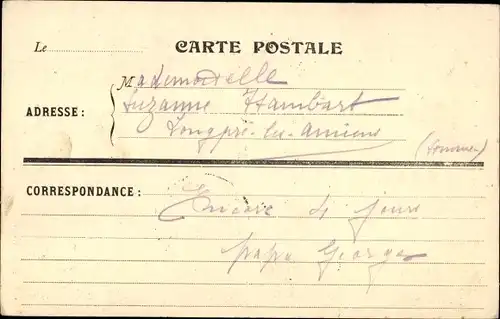 CARTE POSTALE
Le
Mademoiselle
ADRESSE :
Suzanne Hambart
Longpré-les-Amiens
(Somme)
CORRESPONDANCE :
Encore 4 jours
papa Georges